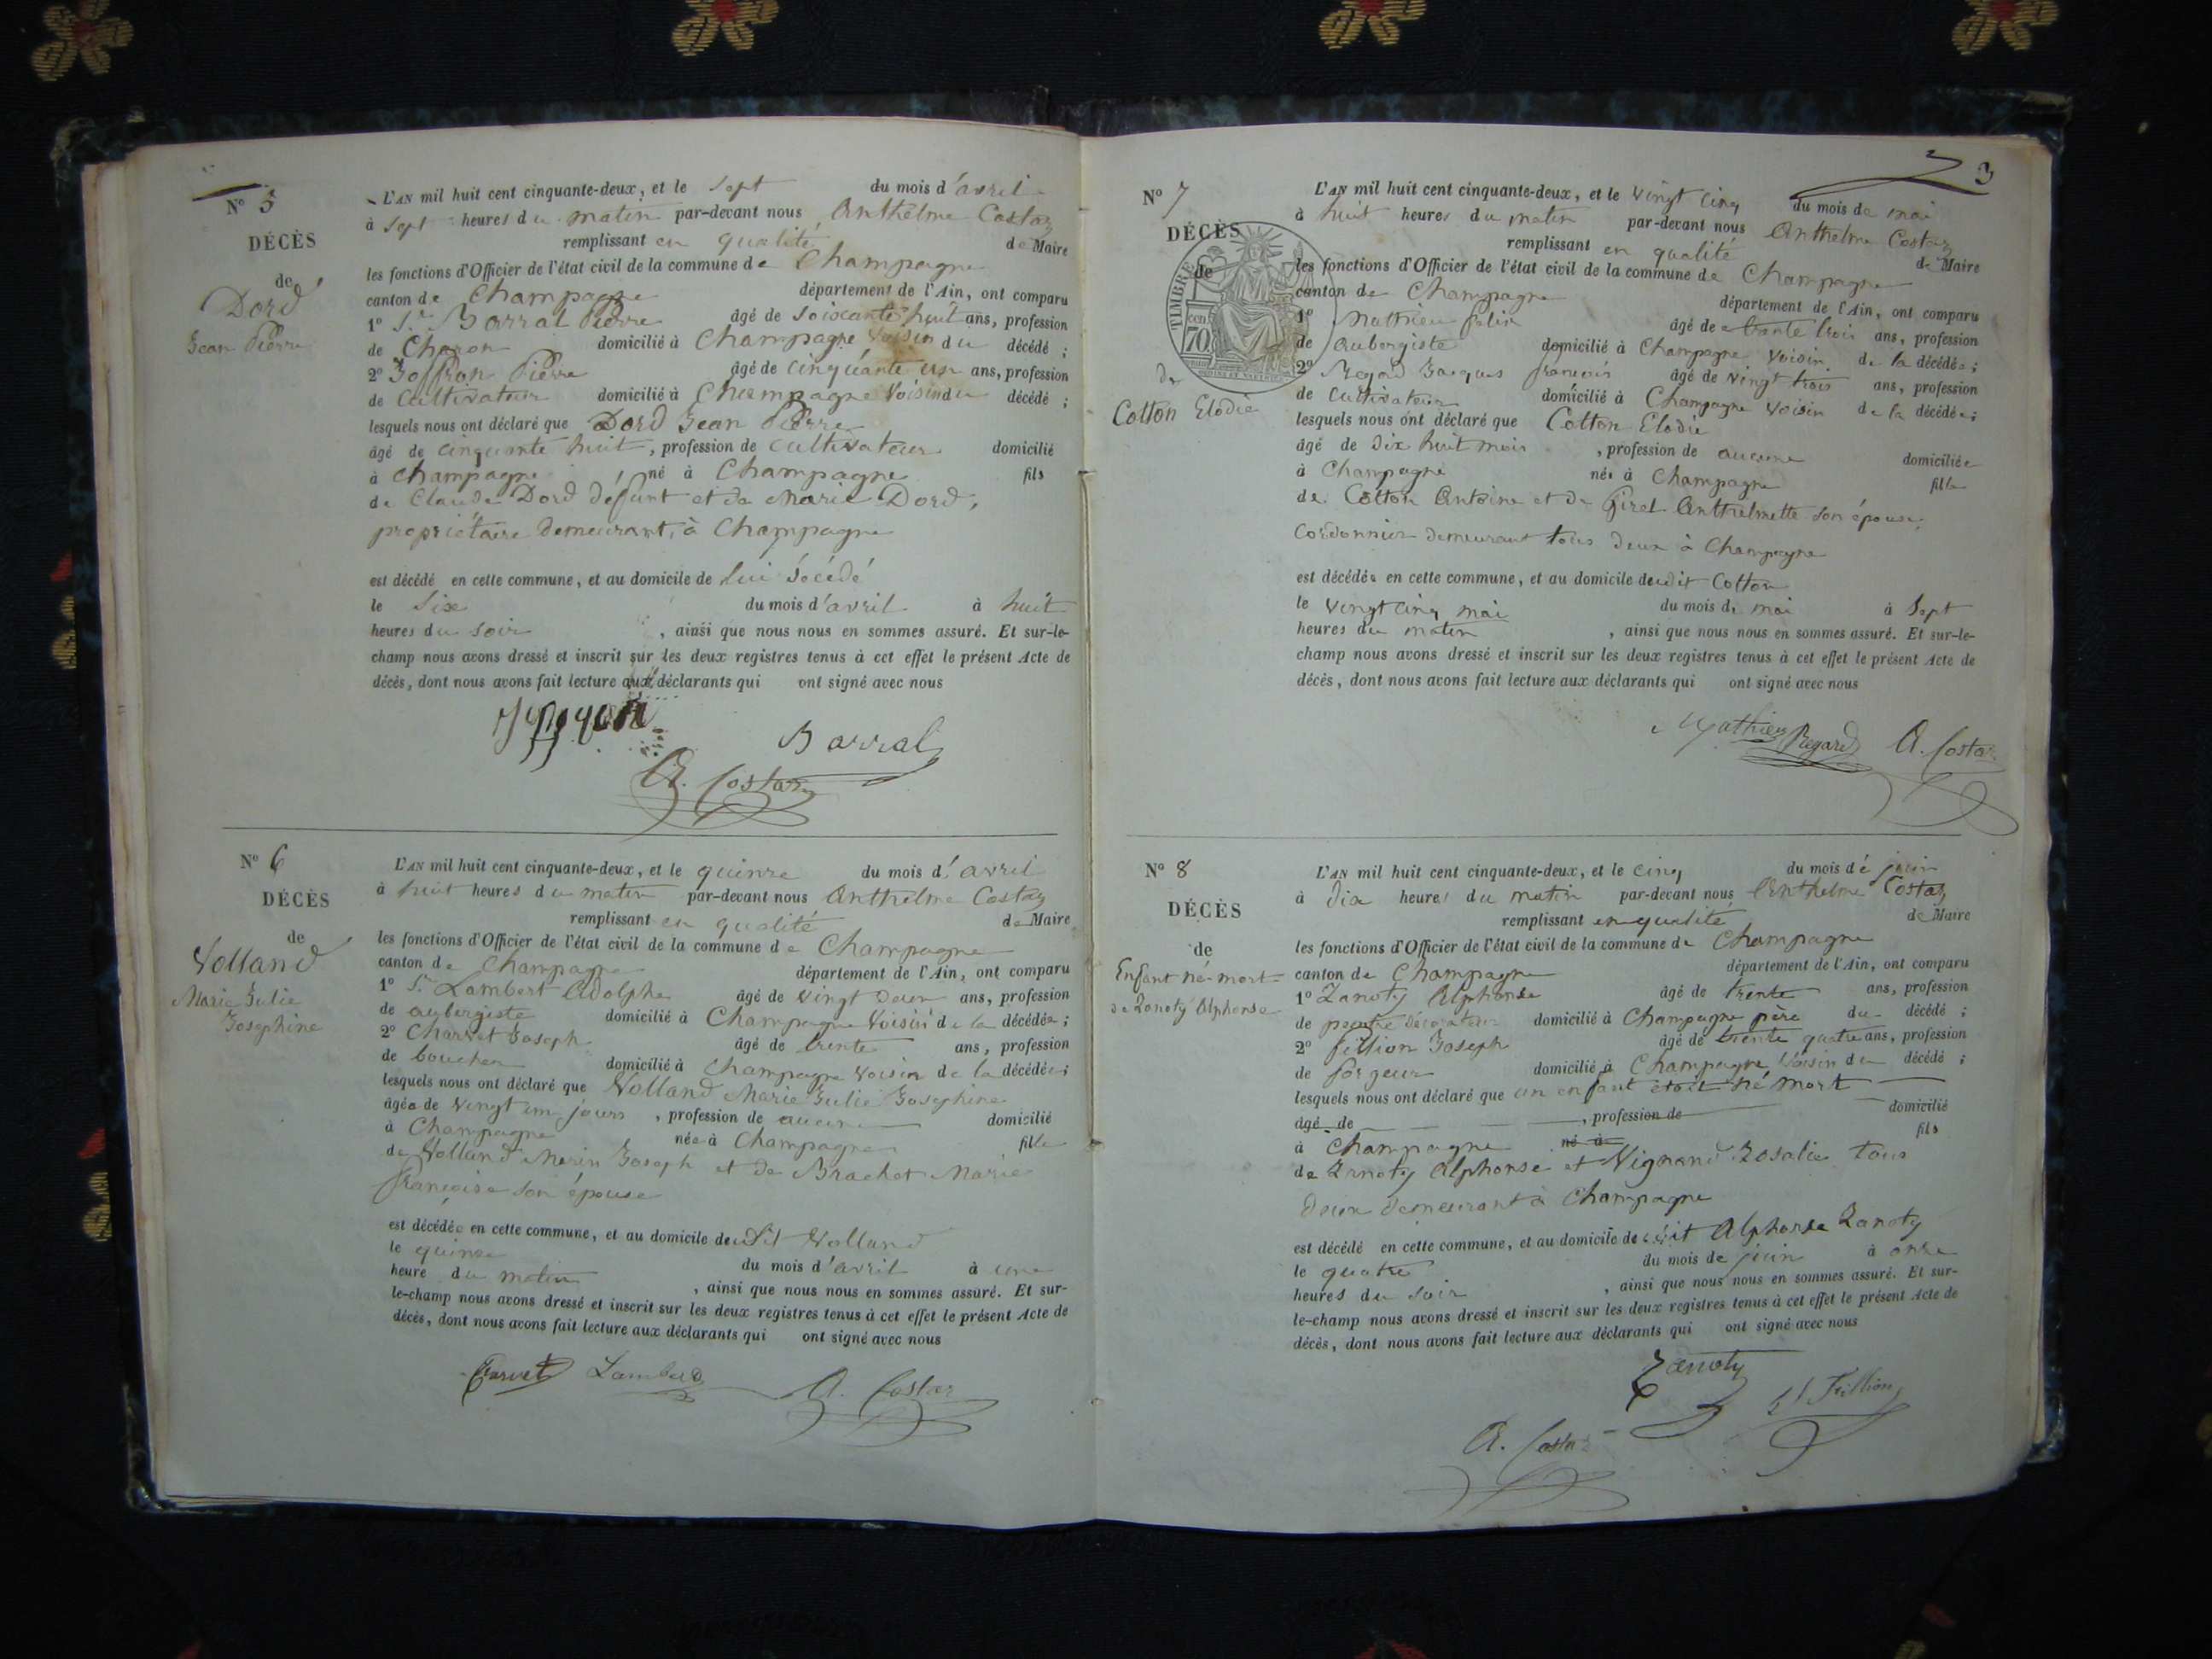 N° 5
DÉCÈS
de
Dord
Jean Pierre
L'AN mil huit cent cinquante-deux, et le sept du mois d'avril
à sept heures du matin par-devant nous Anthelme Costaz
remplissant en qualité de Maire
les fonctions d'Officier de l'état civil de la commune de Champagne
canton de Champagne département de l'Ain, ont comparu
1° Sr Barral Pierre âgé de soixante huit ans, profession
de Charon domicilié à Champagne voisin du décédé ;
2° Pierre âgé de cinquante un ans, profession
de cultivateur domicilié à Champagne voisin du décédé ;
lesquels nous ont déclaré que Dord Jean Pierre
âgé de cinquante huit, profession de cultivateur domicilié
à Champagne, né à Champagne fils
de Claude Dord défunt et de Marie Dord,
propriétaire demeurant à Champagne
est décédé en cette commune, et au domicile de lui décédé
le six du mois d'avril à huit
heures du soir, ainsi que nous nous en sommes assuré. Et sur-le-
champ nous avons dressé et inscrit sur les deux registres tenus à cet effet le présent Acte de
décès, dont nous avons fait lecture aux déclarants qui ont signé avec nous
Barral
A. Costaz
N° 6
DÉCÈS
de
Volland
Marie Julie
Josephine
L'AN mil huit cent cinquante-deux, et le quinze du mois d'avril
à huit heures du matin par-devant nous Anthelme Costaz
remplissant en qualité de Maire
les fonctions d'Officier de l'état civil de la commune de Champagne
canton de Champagne département de l'Ain, ont comparu
1° Sr Lambert Adolphe âgé de vingt deux ans, profession
de aubergiste domicilié à Champagne voisin de la décédée ;
2° Charvet Joseph âgé de trente ans, profession
de boucher domicilié à Champagne voisin de la décédée ;
lesquels nous ont déclaré que Volland Marie Julie Josephine
âgée de vingt un jours, profession de aucune domicilié
à Champagne née à Champagne fille
de Volland Marin Joseph et de Brachet Marie
françoise son épouse
est décédée en cette commune, et au domicile dudit Volland
le quinze du mois d'avril à une
heure du matin, ainsi que nous nous en sommes assuré. Et sur-
le-champ nous avons dressé et inscrit sur les deux registres tenus à cet effet le présent Acte de
décès, dont nous avons fait lecture aux déclarants qui ont signé avec nous
Charvet Lambert A. Costaz
3
N° 7
DÉCÈS
de
TIMBRE
70
de
Cotton Elodie
L'AN mil huit cent cinquante-deux, et le vingt cinq du mois de mai
à huit heures du matin par-devant nous Anthelme Costaz
remplissant en qualité de Maire
les fonctions d'Officier de l'état civil de la commune de Champagne
canton de Champagne département de l'Ain, ont comparu
1° Mathieu felix âgé de trente trois ans, profession
de aubergiste domicilié à Champagne voisin de la décédée ;
2° Regard Jacques françois âgé de vingt trois ans, profession
de cultivateur domicilié à Champagne voisin de la décédée ;
lesquels nous ont déclaré que Cotton Elodie
âgé de dix huit mois, profession de aucune domiciliée
à Champagne née à Champagne fille
de Cotton Antoine et de Girel Anthelmette son épouse,
cordonnier demeurant tous deux à Champagne
est décédée en cette commune, et au domicile dudit Cotton
le vingt cinq mai du mois de mai à sept
heures du matin, ainsi que nous nous en sommes assuré. Et sur-le-
champ nous avons dressé et inscrit sur les deux registres tenus à cet effet le présent Acte de
décès, dont nous avons fait lecture aux déclarants qui ont signé avec nous
Mathieu Regard A. Costaz
N° 8
DÉCÈS
de
Enfant né-mort
de Zanoty Alphonse
L'AN mil huit cent cinquante-deux, et le cinq du mois de juin
à dix heures du matin par-devant nous Anthelme Costaz
remplissant en qualité de Maire
les fonctions d'Officier de l'état civil de la commune de Champagne
canton de Champagne département de l'Ain, ont comparu
1° Zanoty Alphonse âgé de trente ans, profession
de peintre décorateur domicilié à Champagne père du décédé ;
2° fillion Joseph âgé de trente quatre ans, profession
de forgeur domicilié à Champagne voisin du décédé ;
lesquels nous ont déclaré que un enfant étoit né mort
âgé de, profession de domicilié
à Champagne né à fils
de Zanoty Alphonse et Vignand Rosalie tous
deux demeurant à Champagne
est décédé en cette commune, et au domicile dudit Alphonse Zanoty
le quatre du mois de juin à onze
heures du soir, ainsi que nous nous en sommes assuré. Et sur-
le-champ nous avons dressé et inscrit sur les deux registres tenus à cet effet le présent Acte de
décès, dont nous avons fait lecture aux déclarants qui ont signé avec nous
Zanoty
Fillion
A. Costaz